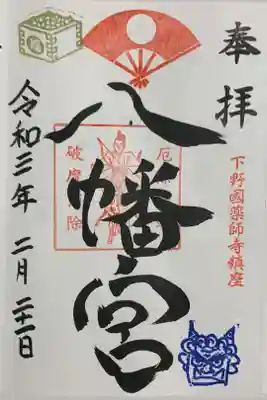 奉拝
下野國薬師寺鎮座
八幡宮
厄除
破魔
令和三年 二月 二十一日